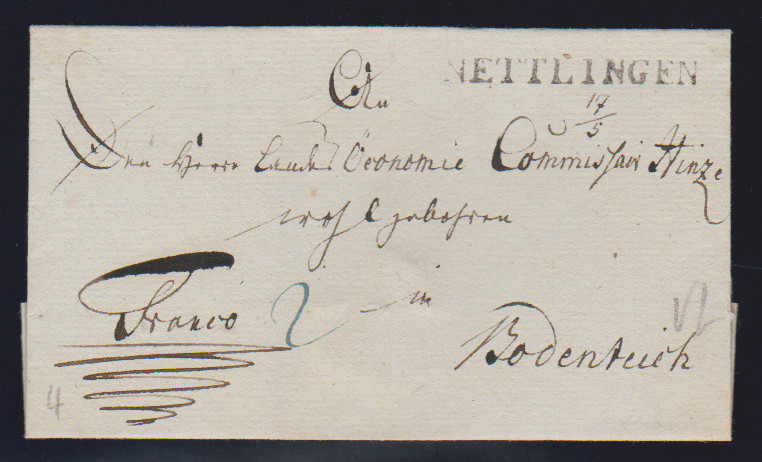 NETTLINGEN
An
17/5
Den Herrn Landes Öconomie Commissair Hinze
wohlgebohren
Franco 2 in
Bodenteich
4